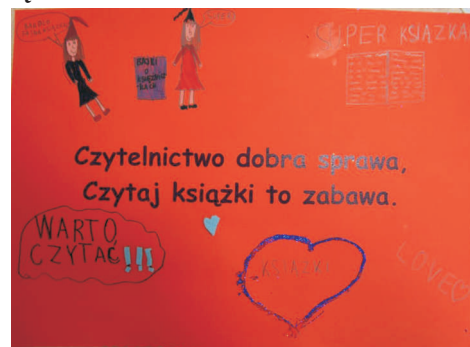 SUPER KSIĄŻKA
BAJKI
O
Czytelnictwo dobra sprawa,
Czytaj książki to zabawa.
WARTO
CZYTAĆ!!!
LOVE